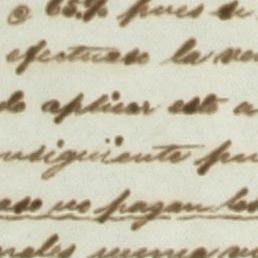 @ 65.% pues de
efectuase la ve
de aplicar esto a
nsiguiente pu
aso no pagan los